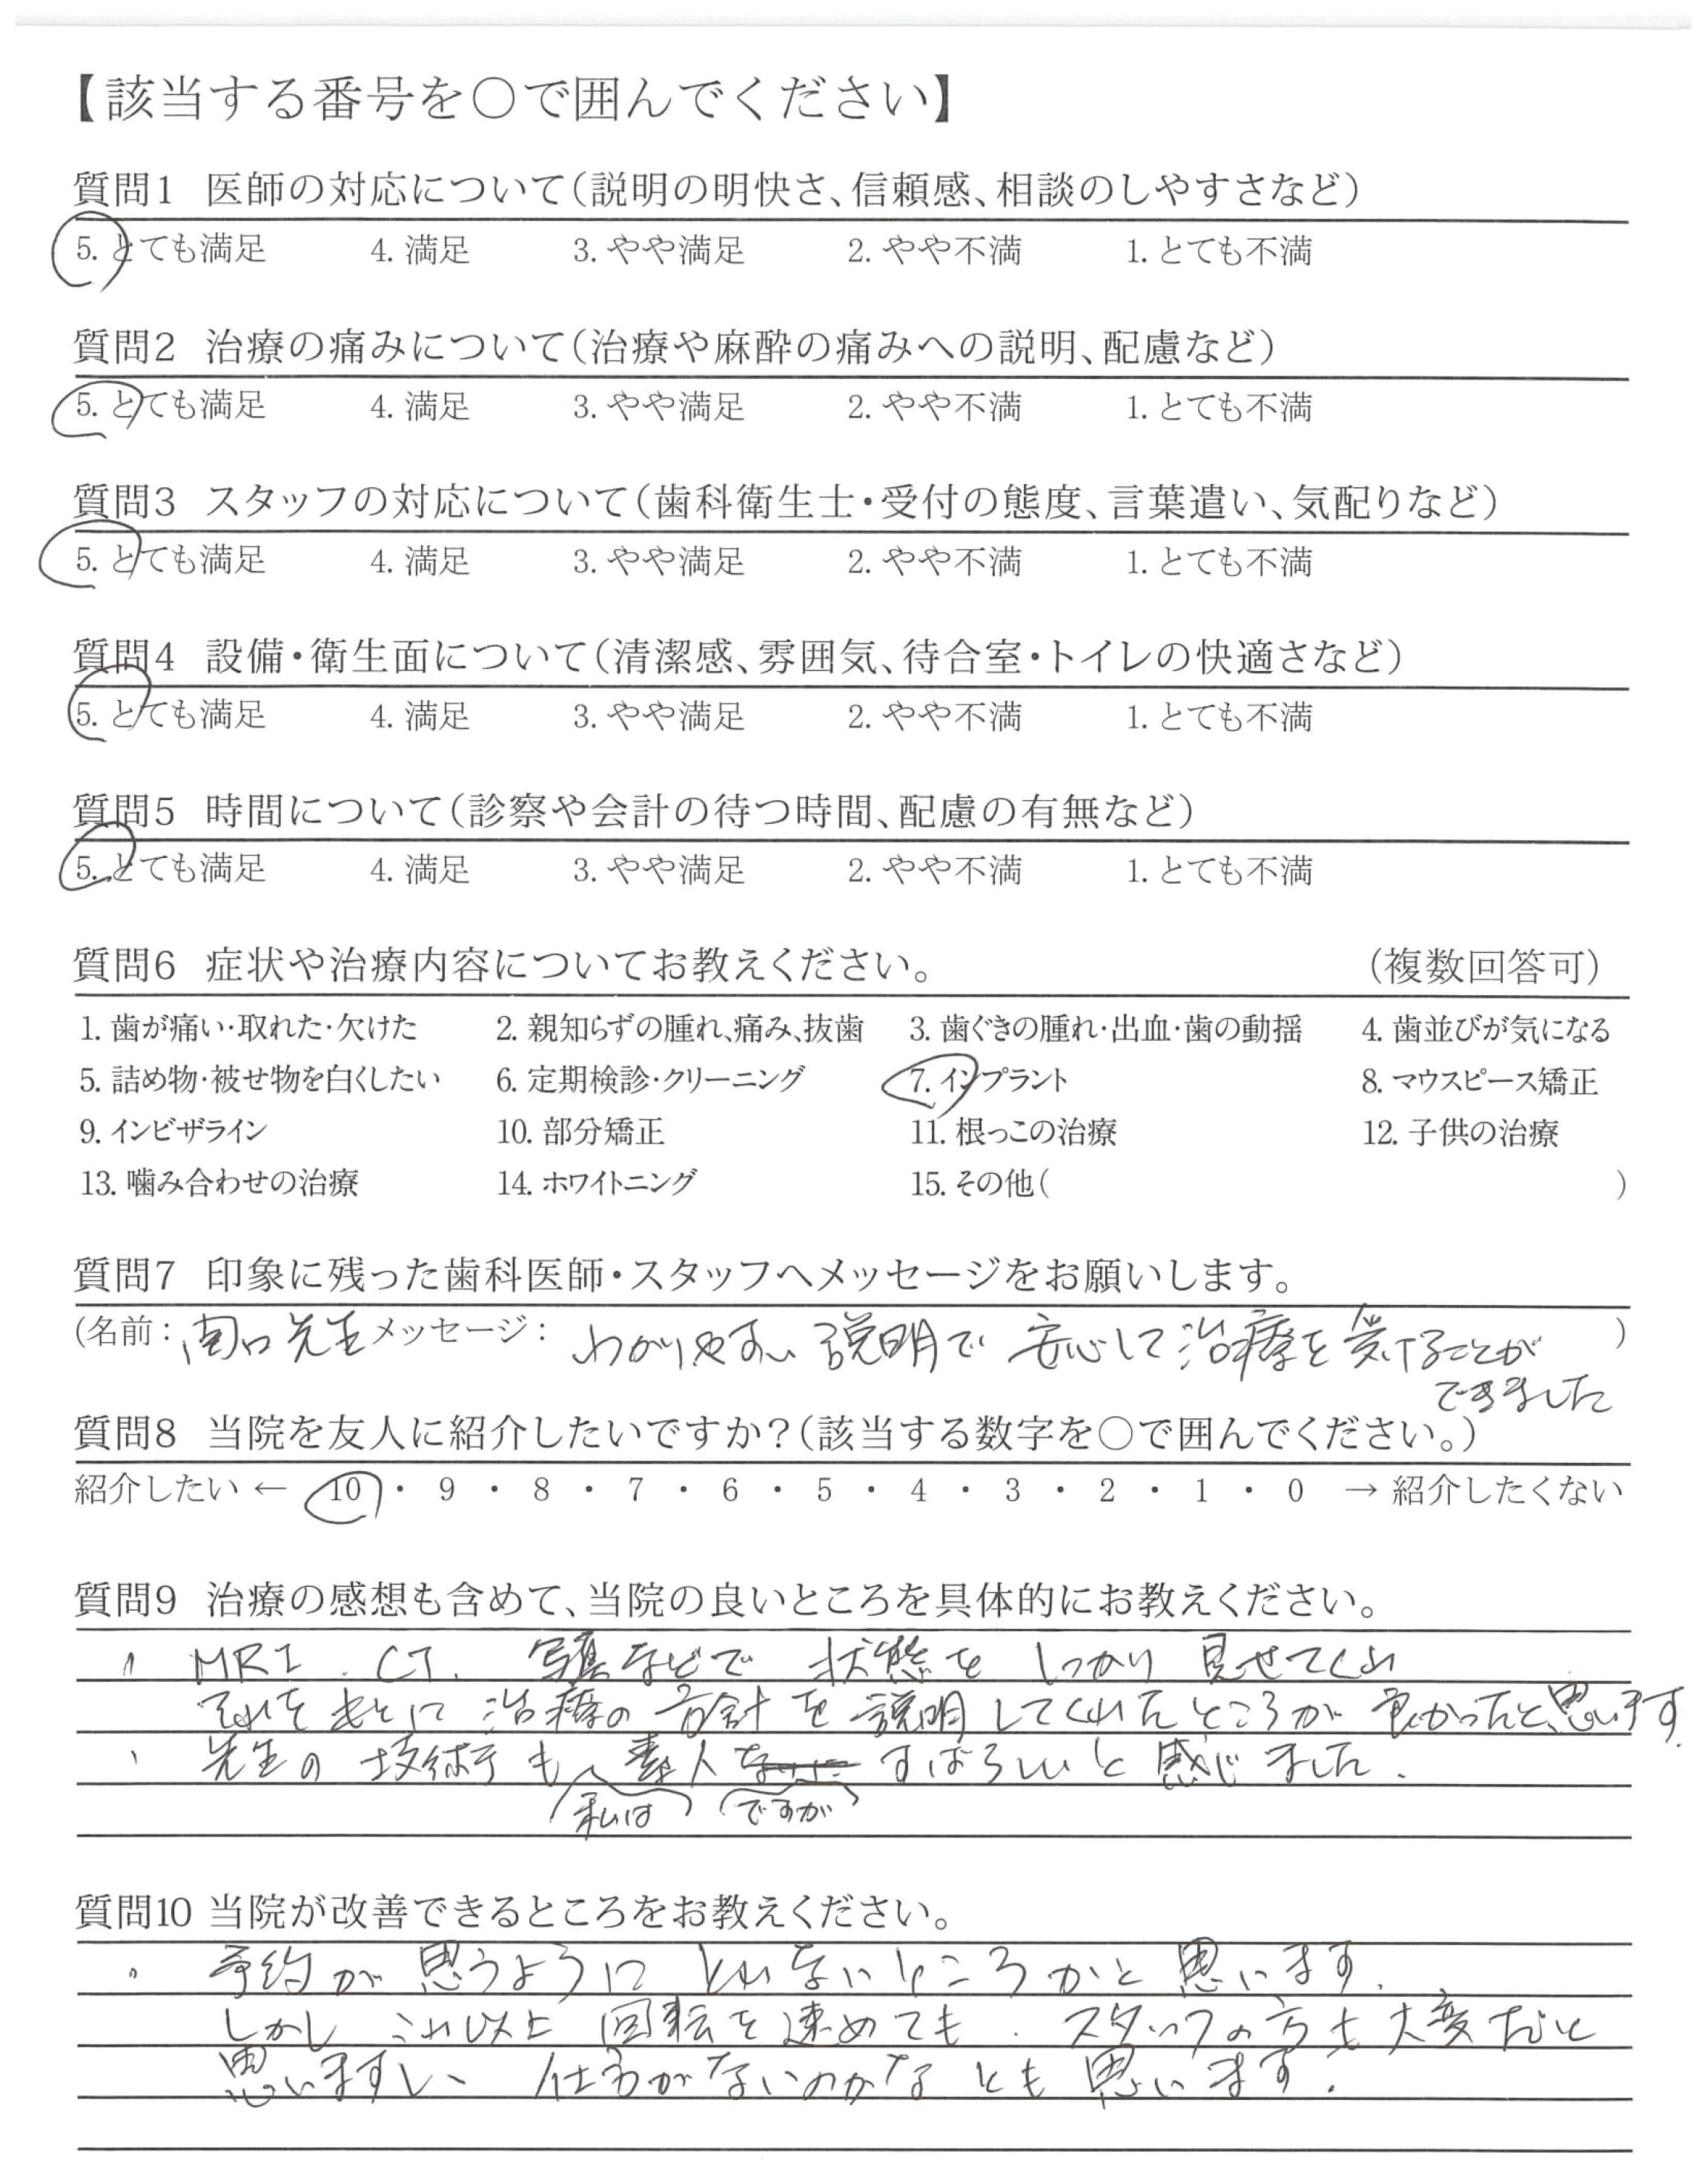 【該当する番号を○で囲んでください】
質問1 医師の対応について(説明の明快さ、信頼感、相談のしやすさなど)
5. とても満足 4. 満足 3. やや満足 2. やや不満 1. とても不満
質問2 治療の痛みについて(治療や麻酔の痛みへの説明、配慮など)
5. とても満足 4. 満足 3. やや満足 2. やや不満 1. とても不満
質問3 スタッフの対応について(歯科衛生士・受付の態度、言葉遣い、気配りなど)
5. とても満足 4. 満足 3. やや満足 2. やや不満 1. とても不満
質問4 設備・衛生面について(清潔感、雰囲気、待合室・トイレの快適さなど)
5. とても満足 4. 満足 3. やや満足 2. やや不満 1. とても不満
質問5 時間について(診察や会計の待つ時間、配慮の有無など)
5. とても満足 4. 満足 3. やや満足 2. やや不満 1. とても不満
質問6 症状や治療内容についてお教えください。 (複数回答可)
1. 歯が痛い・取れた・欠けた 2. 親知らずの腫れ、痛み、抜歯 3. 歯ぐきの腫れ・出血・歯の動揺 4. 歯並びが気になる
5. 詰め物・被せ物を白くしたい 6. 定期検診・クリーニング 7. インプラント 8. マウスピース矯正
9. インビザライン 10. 部分矯正 11. 根っこの治療 12. 子供の治療
13. 噛み合わせの治療 14. ホワイトニング 15. その他( )
質問7 印象に残った歯科医師・スタッフへメッセージをお願いします。
(名前: 先生 メッセージ: わかりやすい 説明で 安心して治療を受けることが )
できました
質問8 当院を友人に紹介したいですか?(該当する数字を○で囲んでください。)
紹介したい ← 10 ・ 9 ・ 8 ・ 7 ・ 6 ・ 5 ・ 4 ・ 3 ・ 2 ・ 1 ・ 0 → 紹介したくない
質問9 治療の感想も含めて、当院の良いところを具体的にお教えください。
MRI. CT. 写真などで 状態を しっかり 見せてくれ
それをもとに 治療の 方針を 説明してくれたところが 良かったと思います.
先生の 技術も、素人 すばらしいと 感じました.
(私は) (ですが)
質問10 当院が改善できるところをお教えください。
。予約が 思うように とれないところかと 思います.
しかし これ以上 回転を速めても. スタッフの方も大変だと
思いますし、 仕方がないのかなとも 思います.